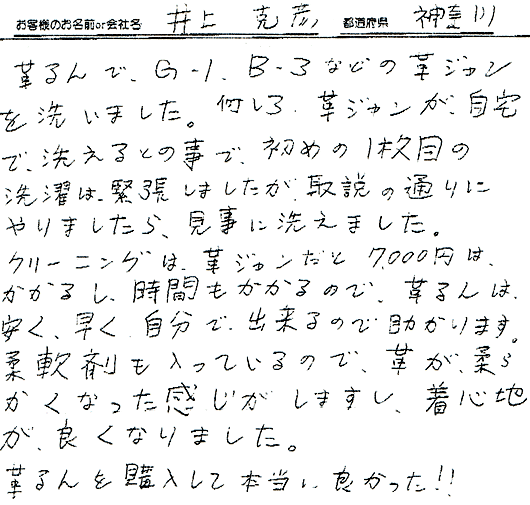 お客様のお名前or会社名 井上 克彦 都道府県 神奈川
革るんで、G-1、B-3などの革ジャン
を洗いました。何しろ、革ジャンが、自宅
で、洗えるとの事で、初めの1枚目の
洗濯は、緊張しましたが、取説の通りに
やりましたら、見事に洗えました。
クリーニングは、革ジャンだと7,000円は、
かかるし、時間もかかるので、革るんは、
安く、早く、自分で、出来るので助かります。
柔軟剤も入っているので、革が、柔ら
かくなった感じがしますし、着心地
が、良くなりました。
革るんを購入して本当に良かった!!